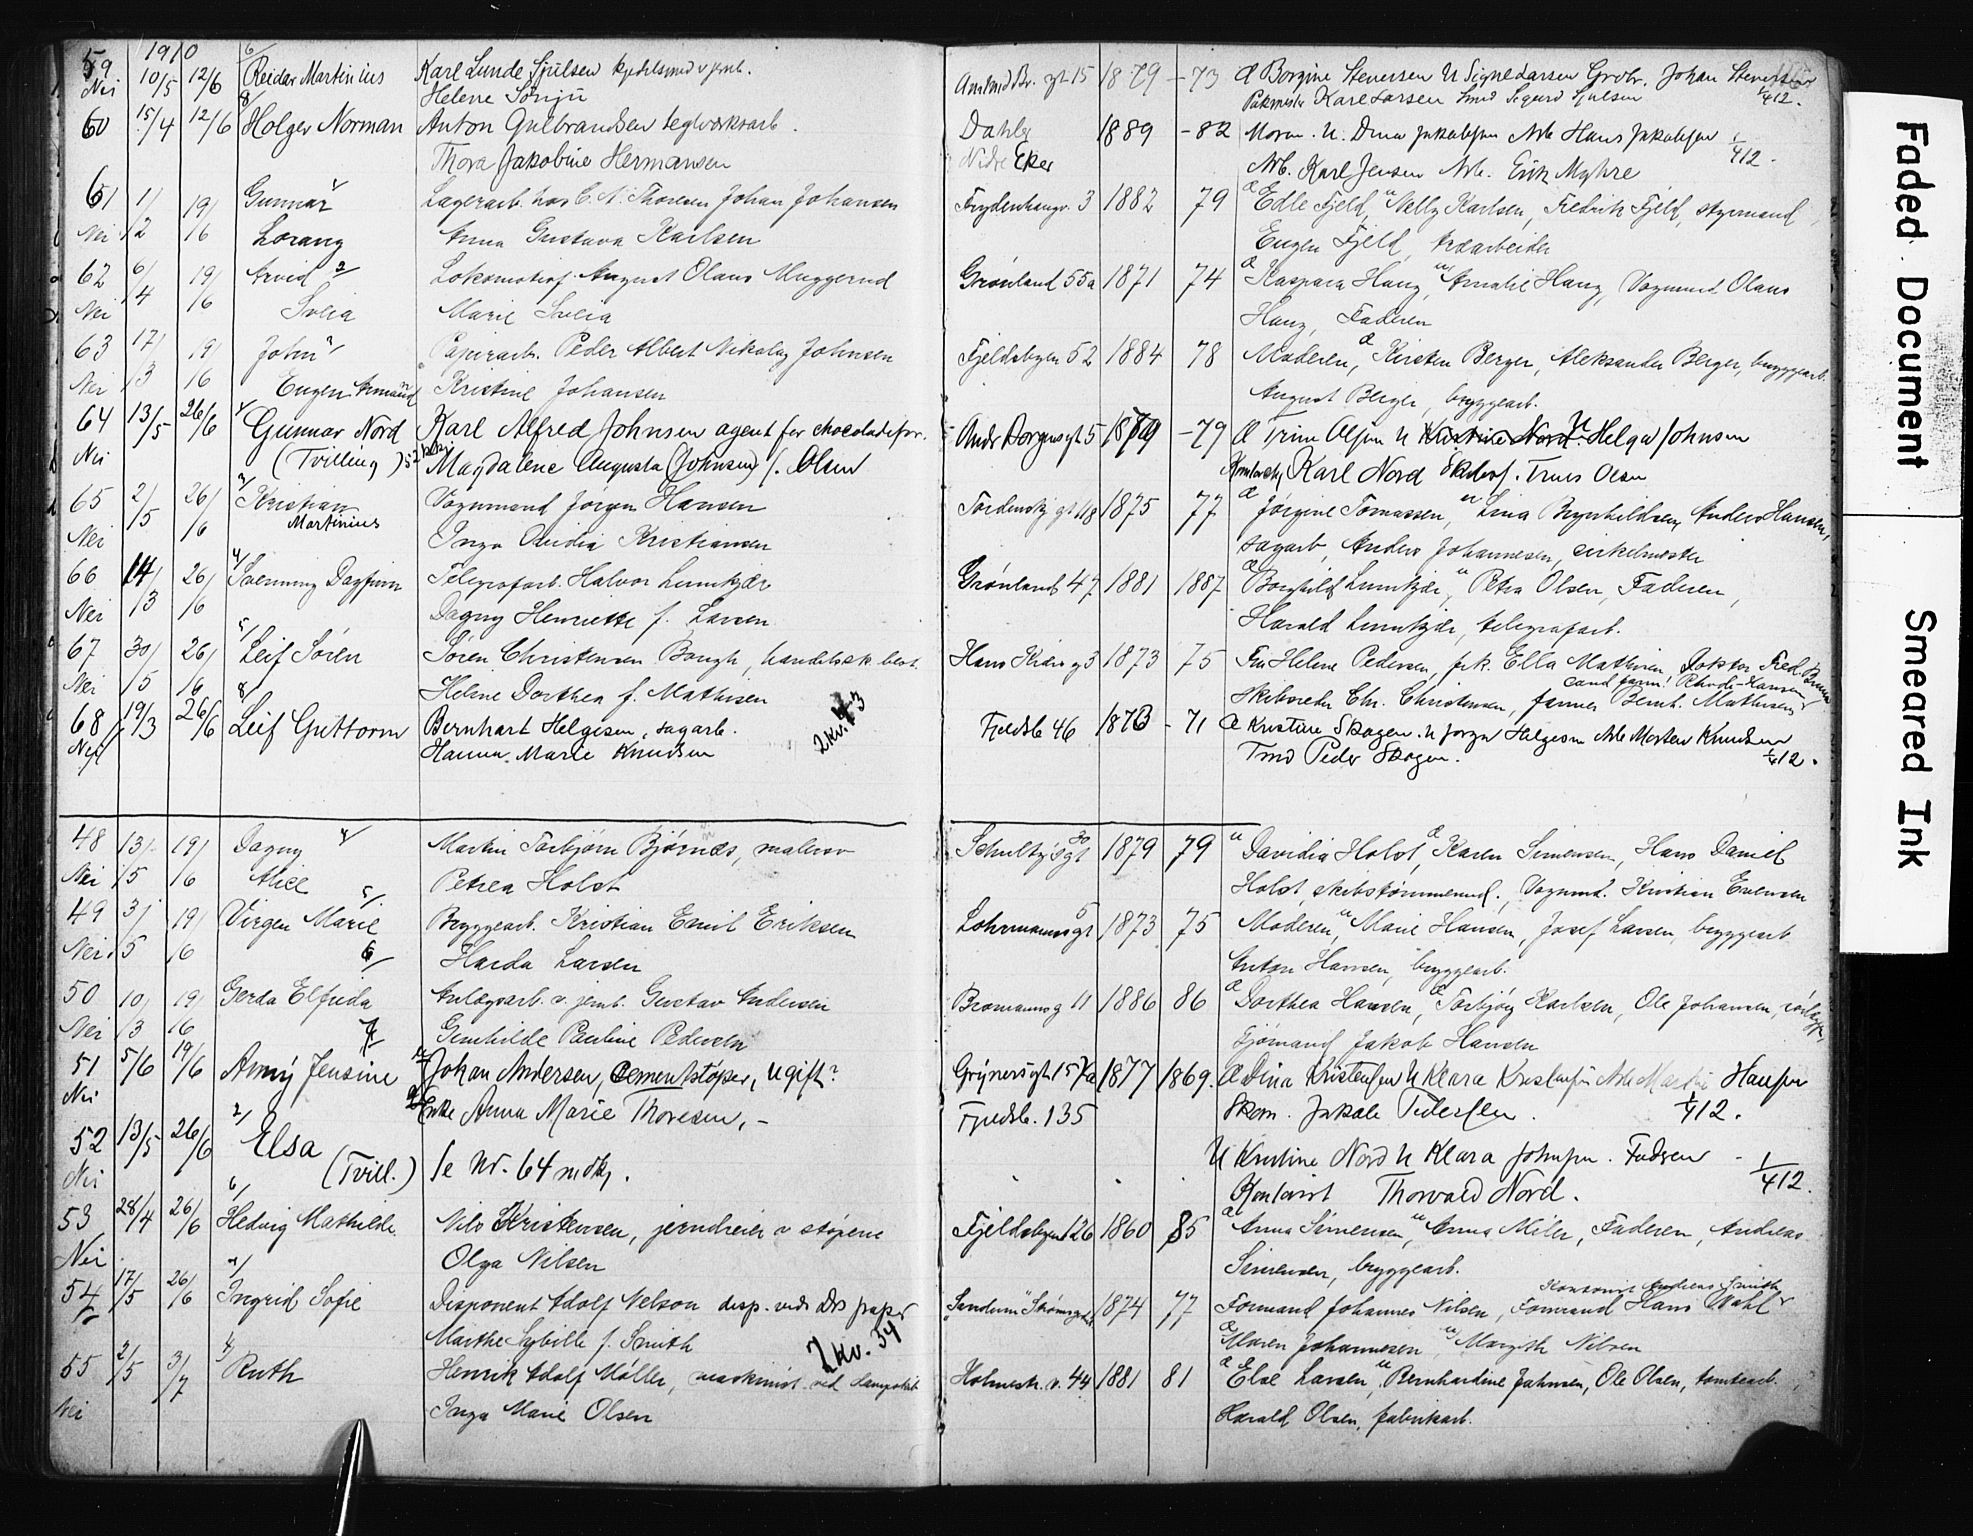 1910
59 10/5 12/6 Reidar Martinius Karl Lunde Sjulsen kjedelsmed v jernb. gt 15 1879 - 73 Æ Borgine Stenersen U Signe Larsen Grovbr. Johan Stenersen
Nei Helene Karl Larsen Smed Sigurd Sjulsen 1/4 12.
60 15/4 12/6 Holger Norman Anton Gulbrandsen teglverksarb. Dahler 1889 - 82 Moren. U. Dina Jakobsen Arb Hans Jakobsen 1/4 12.
Thora Jakobine Hermansen Nedre Eker Arb. Karl Jensen Arb. Erik Myhre
61 1/2 19/6 Gunnar Lagerarb. hos C. A. Thoresen Johan Johansen Frydenhaugv. 3 1882 79 Æ Edle Fjeld, U Nelly Karlsen, Fredrik Fjeld, styrmand,
Nei Lorang Anna Gustava Karlsen Eugen Fjeld, træarbeider
62 6/4 19/6 Arvid Lokomotivf. August Olaus Muggerud Grønland 55a 1871 74 Æ Kaspara Haug, U Amalie Haug, Vognmand Olaus
Nei Marie Haug, Faderen
63 17/3 19/6 John Papirarb. Peder Albert Nikolay Johnsen Fjeldsbyen 52 1884 78 Moderen, Æ Kirsten Berger, Aleksander Berger, bryggearb.
Nei Eugen Armand Kristine Johansen August Berger, bryggearb.
64 13/5 26/6 Gunnar Nord Karl Alfred Johnsen agent for chocoladefor. Andr Dorgens gt 5 1879 - 79 Æ Trine Olsen U Kristine Nord U Helga Johnsen
Nei (Tvilling) Magdalene Augusta (Johnsen) f. Olsen Karl Nord Truls Olsen
65 2/5 26/6 Kristian Vognmand Jørgen Hansen gt 48 1875 77 Æ Jørgine Tomassen, U Lina Brynhildsen, Anders Hansen,
Nei Martinius Inga Ovidia Kristiansen sagarb, Anders Johannesen, cirkelmester
66 14/3 26/6 Sverning Dagfinn Telegrafarb. Halvor Lunnkjær Grønland 47 1881 1887 Æ Borghild Lunnkjær, U Petra Olsen, Faderen,
Nei Dagny Henriette f. Larsen Harald Lunnkjær, telegrafarb.
67 30/5 26/6 Leif Sören Sören Christensen Bough, handelsek. best. Hans Kiærs g 3 1873 75 Fru Helene Pedersen, frk. Ella Mathisen, Doktor Fred. Bruun
cand farm. Rhode-Hansen
Nei Helene Dorthea f. Mathisen Skibsreder Chr. Christensen, farmer Bernt. Mathisen
68 19/3 26/6 Leif Guttorm Bernhart Helgesen, sagarb. 2 kv. 73 Fjeldsb 46 1873 - 71 Æ Kristine Skogen. U Jørgen Helgesen Arb Morten Knudsen
Nei Hanna Marie Knudsen Tmd Peder Skogen. 1/4 12.
48 13/5 19/6 Dagny Martin Torbjørn Bjørnes, malersv Schultz's gt 30 1879 79 U Davidia Holst, Æ Karen Simensen, Hans Daniel
Nei Alice Petrea Holst Holst, skibstømmermd., Vognmd. Kristian Evensen
49 3/5 19/6 Virgen Marie Bryggearb. Kristian Emil Eriksen Lohrmanns gt 5 1873 75 Moderen, U Marie Hansen, Josef Larsen, bryggearb
Nei Harda Larsen Anton Hansen, bryggearb.
50 10/3 19/6 Gerda Elfrida Anlægsarb. v. jernb. Gustav Andersen Bromanns g 11 1886 86 Æ Dorthea Hansen, Æ Torbjørg Karlsen, Ole Johansen,
Nei Gunhilde Pauline Pedersen Tjømand Jakob Hansen
51 5/6 19/6 Anny Jensine Johan Andersen, Cementstøper, Ugift? 1877 1869. Æ Dina Kristensen U Klara Kristensen Arb Martin Hansen
Nei Enke Anna Marie Thoresen, - Fjeldsb. 135 Skom. Jakob Pedersen. 1/4 12.
52 13/5 26/6 Elsa U Kristine Nord U Klara Johnsen. Faderen - 1/4 12.
Nei (Tvill.) Se Nr. 64 mdkj. Kontorist Thorvald Nord.
53 28/4 26/6 Hedvig Mathilde Nils Kristensen, jerndreier v støperi Fjeldsbyen 126 1860 85 Æ Anna Simensen, U Anna Miler, Faderen, Andreas
Nei Olga Nilsen Simensen, bryggearb.
Andreas Smith
54 17/5 26/6 Ingrid Sofie Disponent Adolf Nelson disp. ved Drs papir 1874 77 Formand Johannes Nilsen, Formand Hans Dahl
Marthe Sybille f. Smith 2 kv. 54 Æ Maren Johannesen, U Margith Nilsen
55 2/5 3/7 Ruth Henrik Adolf Møller, maskinist ved Holmestr. v. 44 1881 81 Æ Else Larsen, U Bernhardine Johnsen, Ole Olsen, tomtearb.
Nei Inga Marie Olsen Harald Olsen, fabrikarb.
Faded Document
Smeared Ink